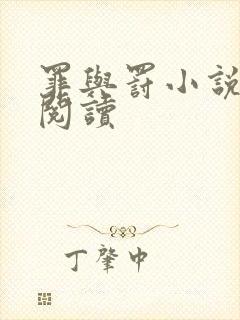 罪與罰小說
閱讀
丁肇中